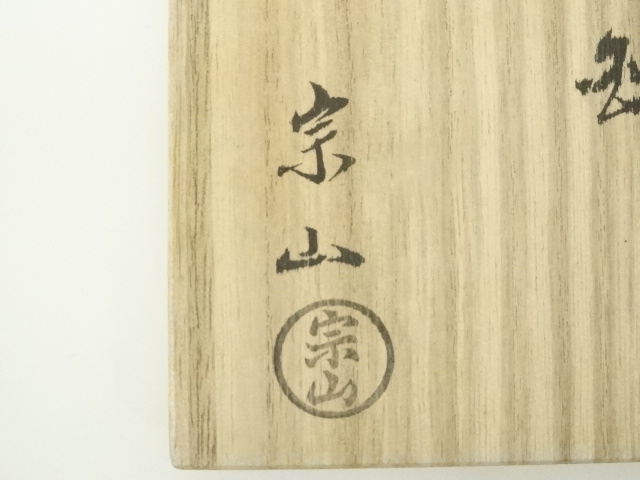 宗山
宗山